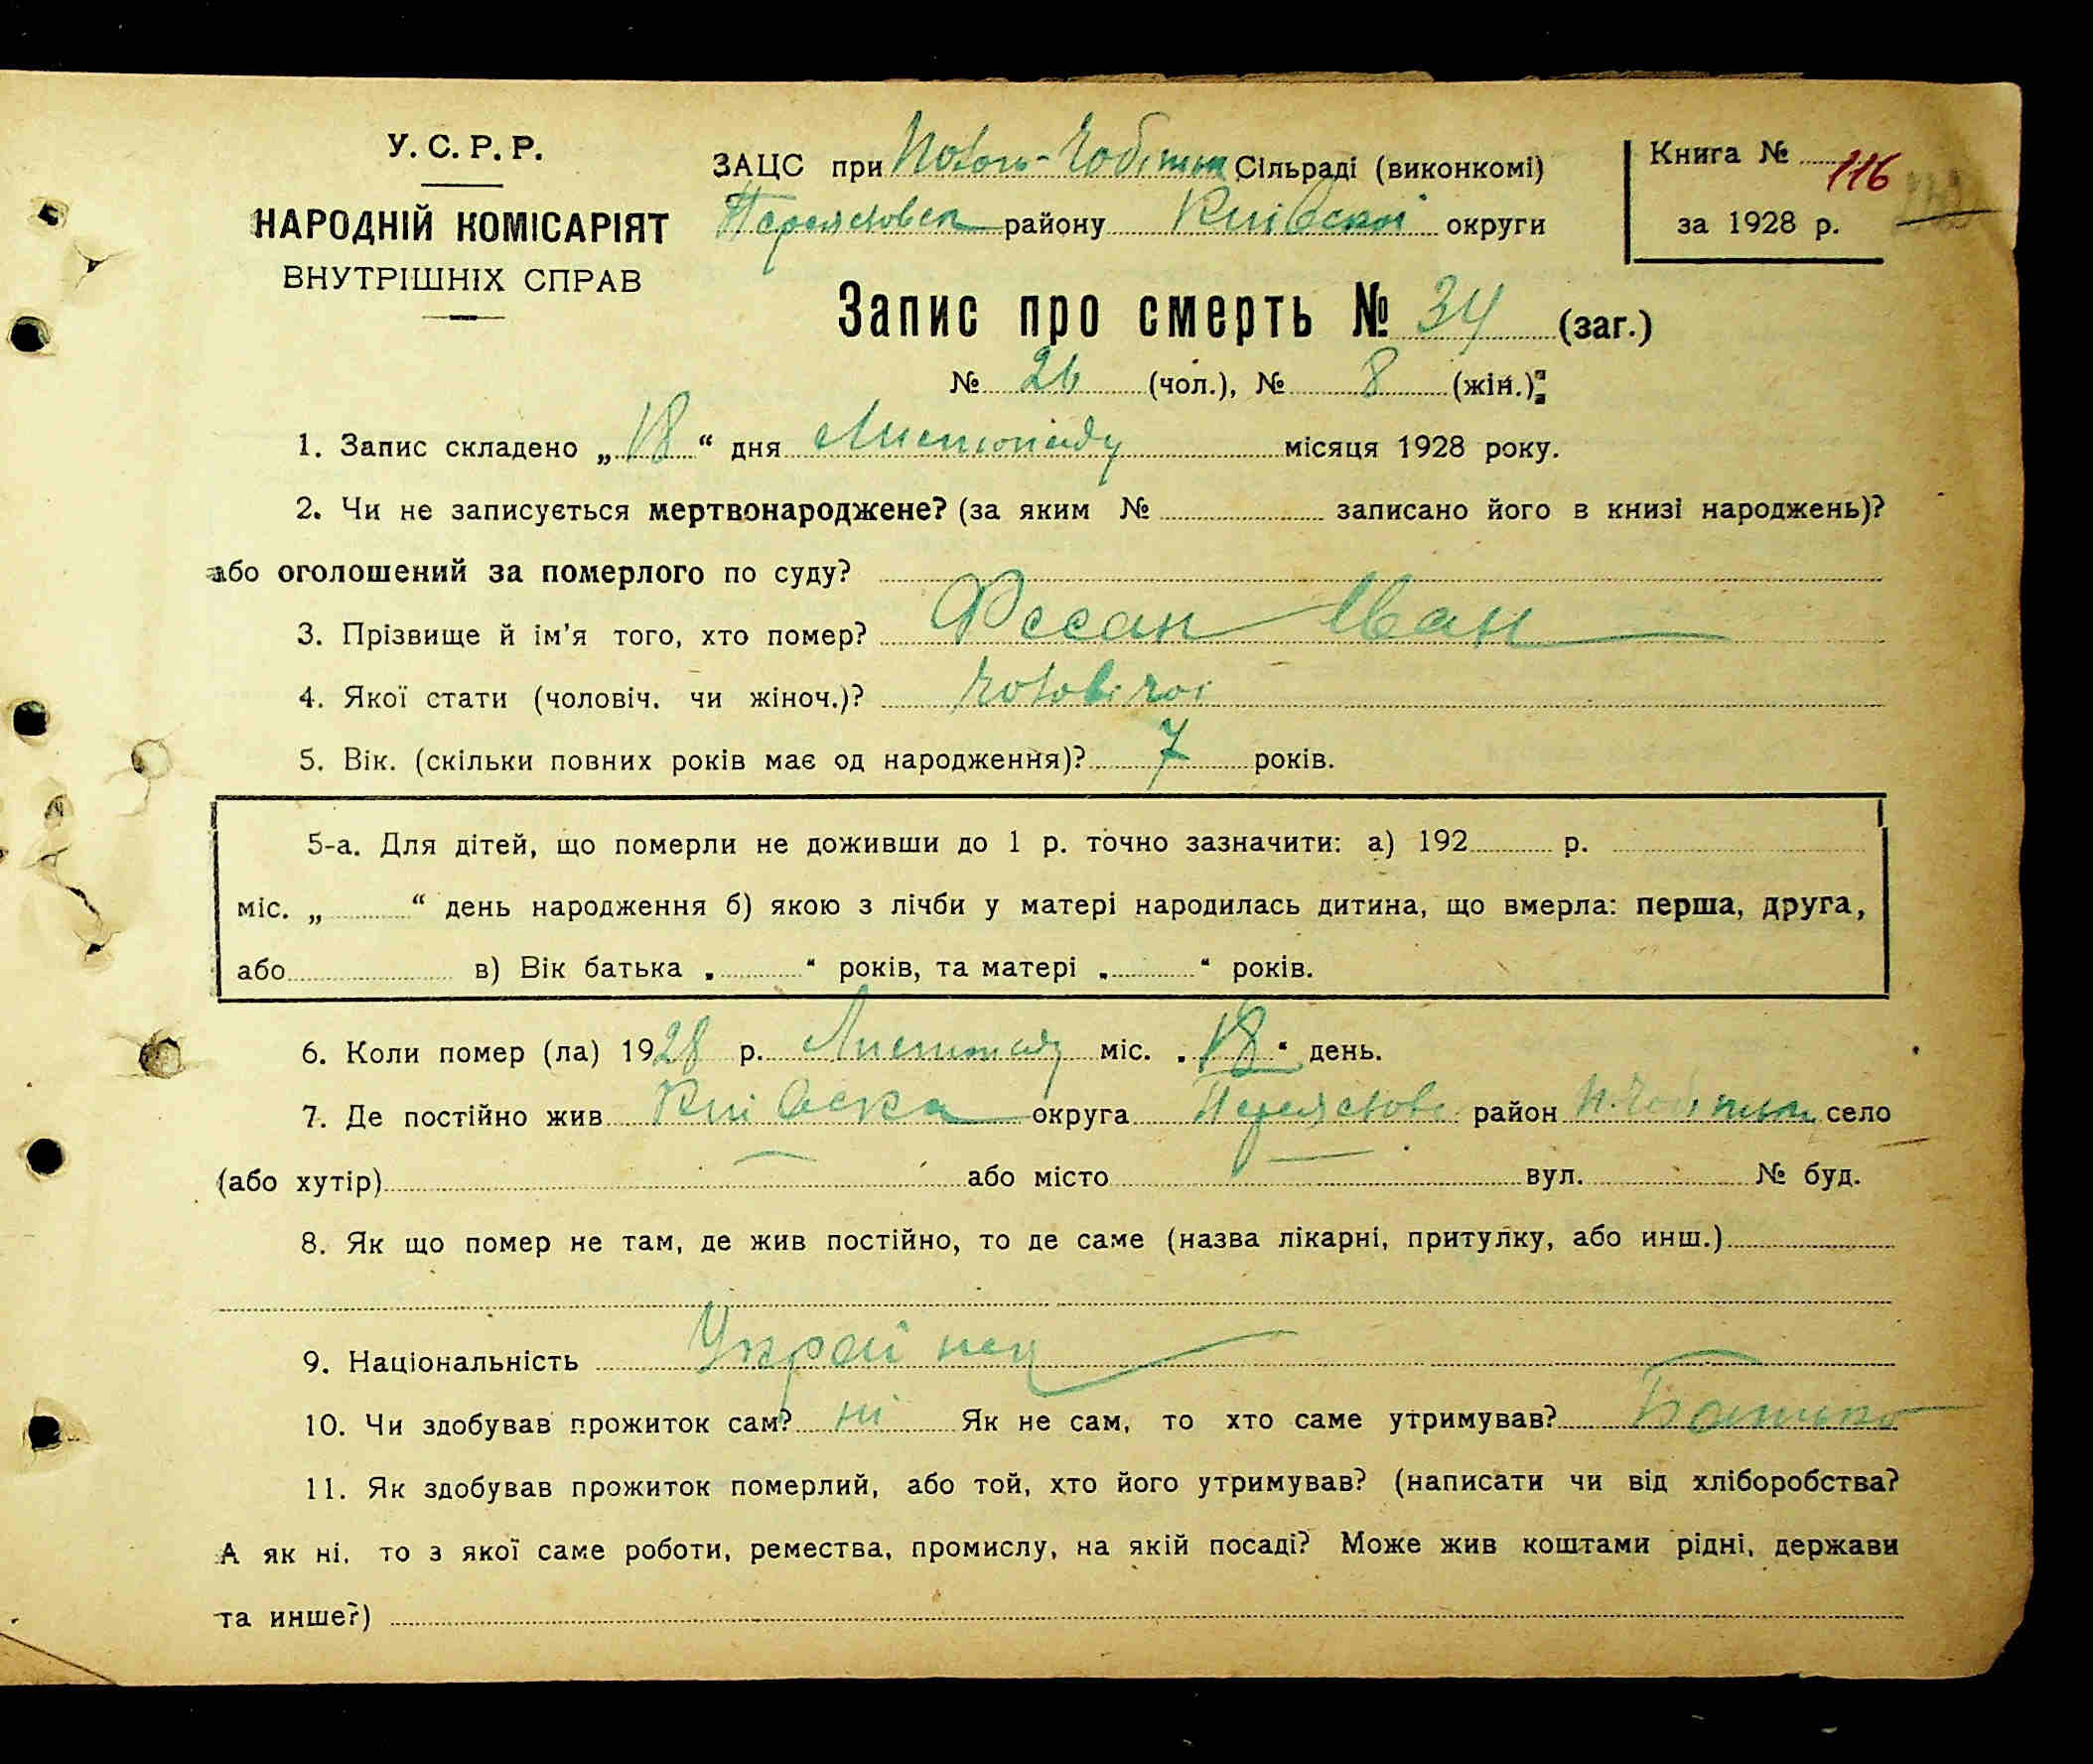 У. С. Р. Р.
НАРОДНІЙ КОМІСАРІЯТ
ВНУТРІШНІХ СПРАВ
ЗАЦС при Сільраді (виконкомі)
району Київської округи
Книга № 116
за 1928 р.
Запис про смерть № 34 (заг.)
№ 26 (чол.), № 8 (жін.)
1. Запис складено „18“ дня Листопаду місяця 1928 року.
2. Чи не записується мертвонароджене? (за яким № записано його в книзі народжень)?
або оголошений за померлого по суду?
3. Прізвище й ім’я того, хто помер? Фесан Іван
4. Якої стати (чоловіч. чи жіноч.)? чоловічої
5. Вік. (скільки повних років має од народження)? 7 років.
5-а. Для дітей, що померли не доживши до 1 р. точно зазначити: а) 192 р.
міс. „ “ день народження б) якою з лічби у матері народилась дитина, що вмерла: перша, друга,
або в) Вік батька „ “ років, та матері „ “ років.
6. Коли помер (ла) 1928 р. Листопаду міс. „18“ день.
7. Де постійно жив Київська округа район село
(або хутір) або місто вул. № буд.
8. Як що помер не там, де жив постійно, то де саме (назва лікарні, притулку, або инш.)
9. Національність Українец
10. Чи здобував прожиток сам? ні Як не сам, то хто саме утримував? Батько
11. Як здобував прожиток померлий, або той, хто його утримував? (написати чи від хліборобства?
А як ні, то з якої саме роботи, ремества, промислу, на якій посаді? Може жив коштами рідні, держави
та инше?)